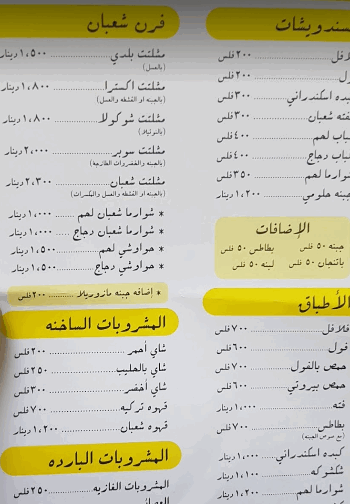 سندويشات
٢٠٠ فلس
٢٠٠ فلس
كبده اسكندراني ٣٠٠ فلس
شعبان ٣٠٠ فلس
كباب لحم ٤٠٠ فلس
كباب دجاج ٤٠٠ فلس
شوارما لحم ٣٥٠ فلس
جبنه حلومي ١,٢٠٠ دينار
الإضافات
جبنه ٥٠ فلس بطاطس ٥٠ فلس
باتنجان ٥٠ فلس لبنه ٥٠ فلس
الأطباق
فلافل ٧٠٠ فلس
فول ٦٠٠ فلس
حمص بالفول ٧٠٠ فلس
حمص بيروتي ٦٠٠ فلس
فته ١,٠٠٠ دينار
بطاطس ٧٠٠ فلس
(مع صوص الجبنه)
كبده اسكندراني ١,٠٠٠ دينار
شكشوكه ١,١٠٠ دينار
شوارما لحم ١,٢٠٠ دينار
فرن شعبان
مثلتت بلدي ١,٥٠٠ دينار
(بالعسل)
مثلتت اكسترا ١,٨٠٠ دينار
(بالجبنه او القشطه والعسل)
مثلتت شوكولا ١,٨٠٠ دينار
(بالنوتيلا)
مثلتت سوبر ٢,٠٠٠ دينار
(بالجبنه والخضروات الطازجه)
مثلتت شعبان ٢,٣٠٠ دينار
(بالجبنه او القشطه والعسل والمكسرات)
* شوارما شعبان لحم ١,٠٠٠ دينار
* شوارما شعبان دجاج ١,٠٠٠ دينار
* حواوشي لحم ١,٥٠٠ دينار
* حواوشي دجاج ١,٥٠٠ دينار
* اضافه جبنه مازوريلا ٢٠٠ فلس
المشروبات الساخنه
شاي أحمر ٢٠٠ فلس
شاي بالحليب ٢٥٠ فلس
شاي أخضر ٣٠٠ فلس
قهوه تركيه ٧٠٠ فلس
قهوه شعبان ١,٢٠٠ دينار
المشروبات البارده
المشروبات الغازيه ٢٥٠ فلس